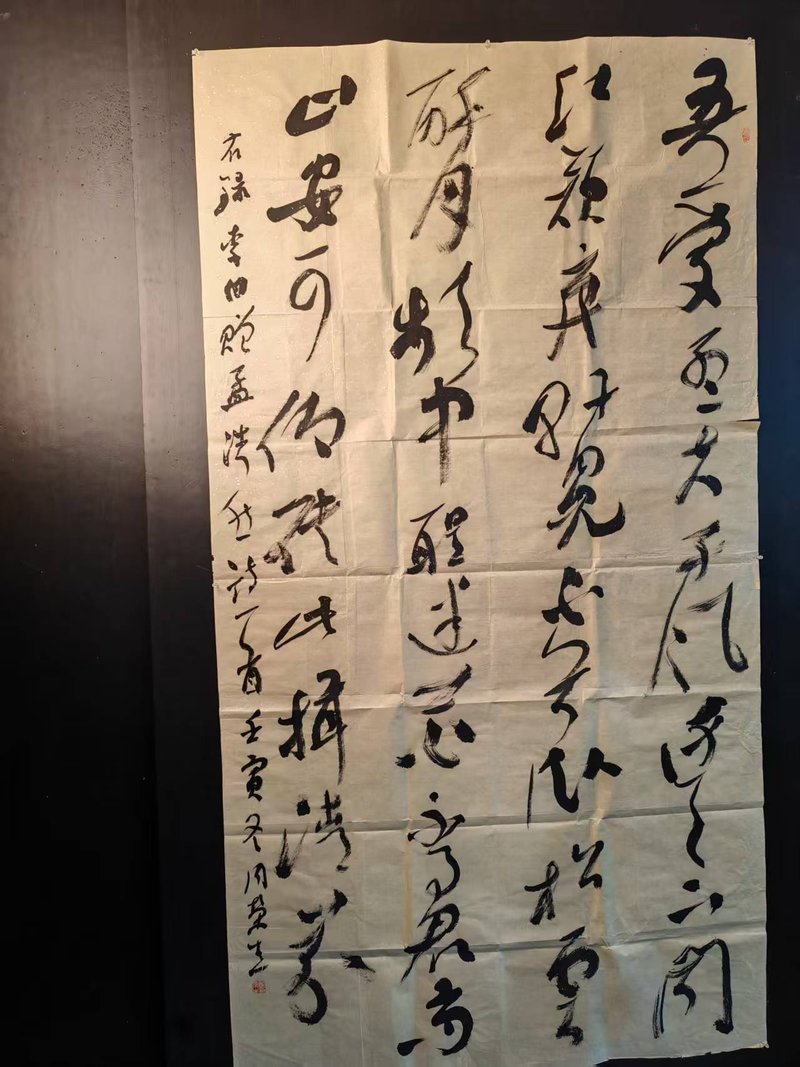 吾愛孟夫子風流天下聞
红颜弃軒冕白首卧松雲
醉月频中聖迷花不事君高
山安可仰徒此揖清芬
右録李白赠孟浩然诗一首壬寅冬